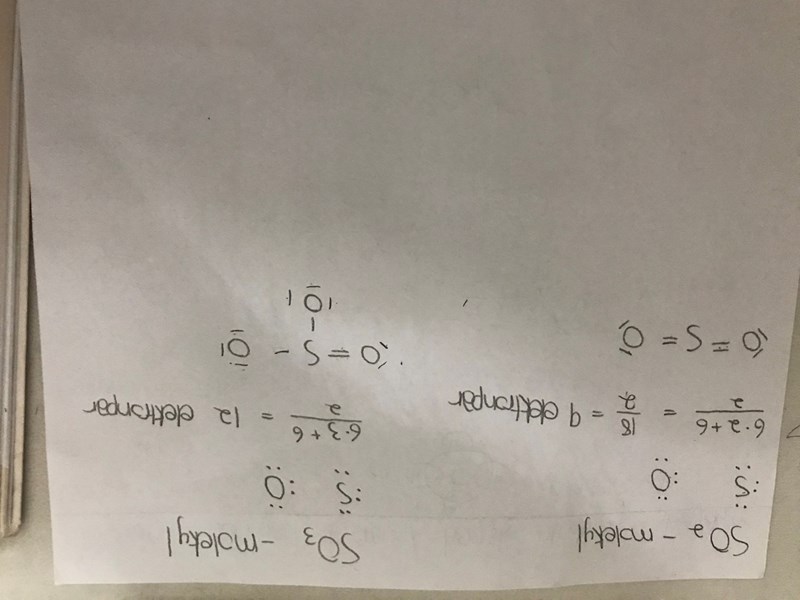 SO₂ - molekyl
:S̈: :Ö:
6·2+6 / 2 = 18 / 2 = 9 elektronpar
O = S = O
SO₃ - molekyl
:S̈: :Ö:
6·3+6 / 2 = 12 elektronpar
O = S - O|
|
|O|